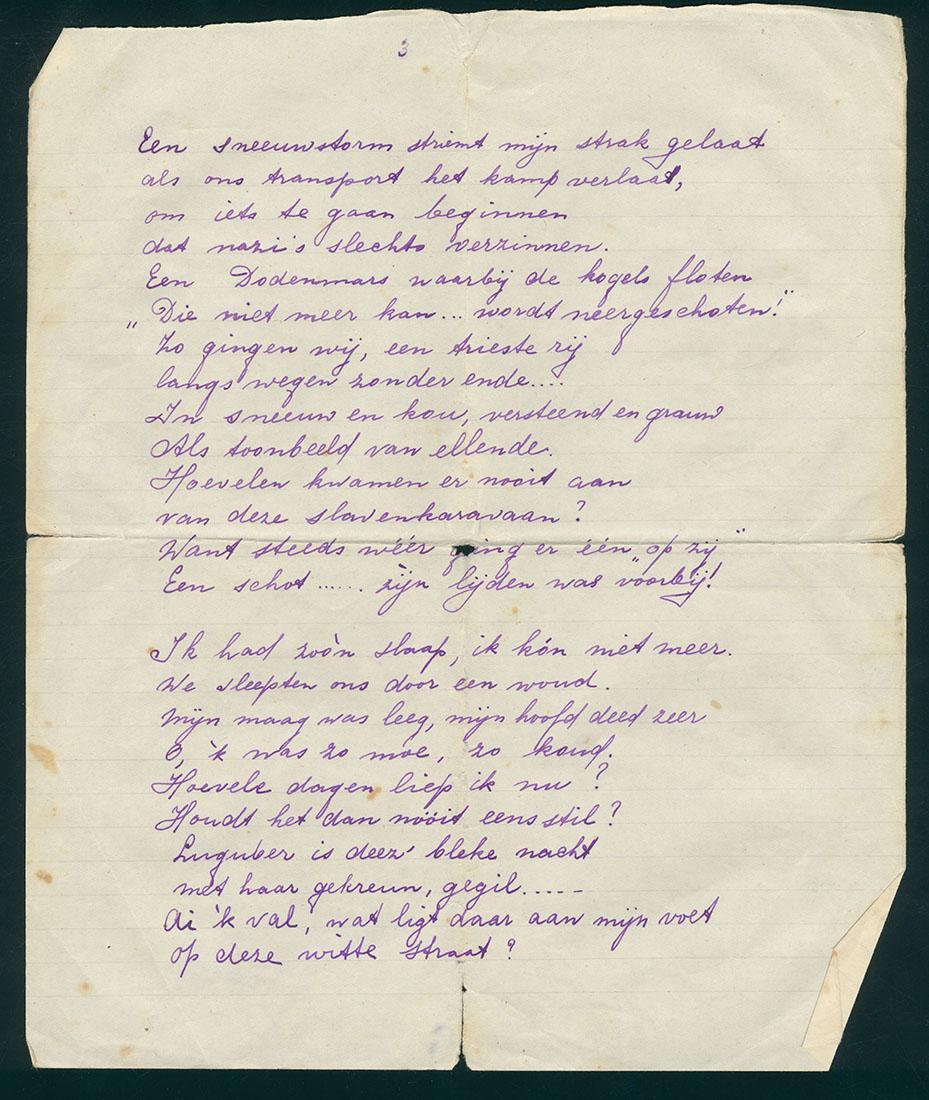 3
Een sneeuwstorm striemt mijn strak gelaat
als ons transport het kamp verlaat,
om iets te gaan beginnen
dat nazi's slechts verzinnen.
Een Dodenmars waarbij de kogels floten
„Die niet meer kan... wordt neergeschoten!"
Zo gingen wij, een trieste rij
langs wegen zonder ende....
In sneeuw en kou, versteend en grauw
Als toonbeeld van ellende.
Hoevelen kwamen er nooit aan
van deze slavenkaravaan?
Want steeds wéér ging er één „op zij"
Een schot ..... zijn lijden was voorbij!
Ik had zóó'n slaap, ik kón niet meer.
We sleepten ons door een woud.
Mijn maag was leeg, mijn hoofd deed zeer
O, 'k was zo moe, zo koud.
Hoevele dagen liep ik nu?
Houdt het dan nóóit eens stil?
Luguber is deez' bleke nacht
met haar gekreun, gegil.....
Ai 'k val, wat ligt daar aan mijn voet
op deze witte straat?